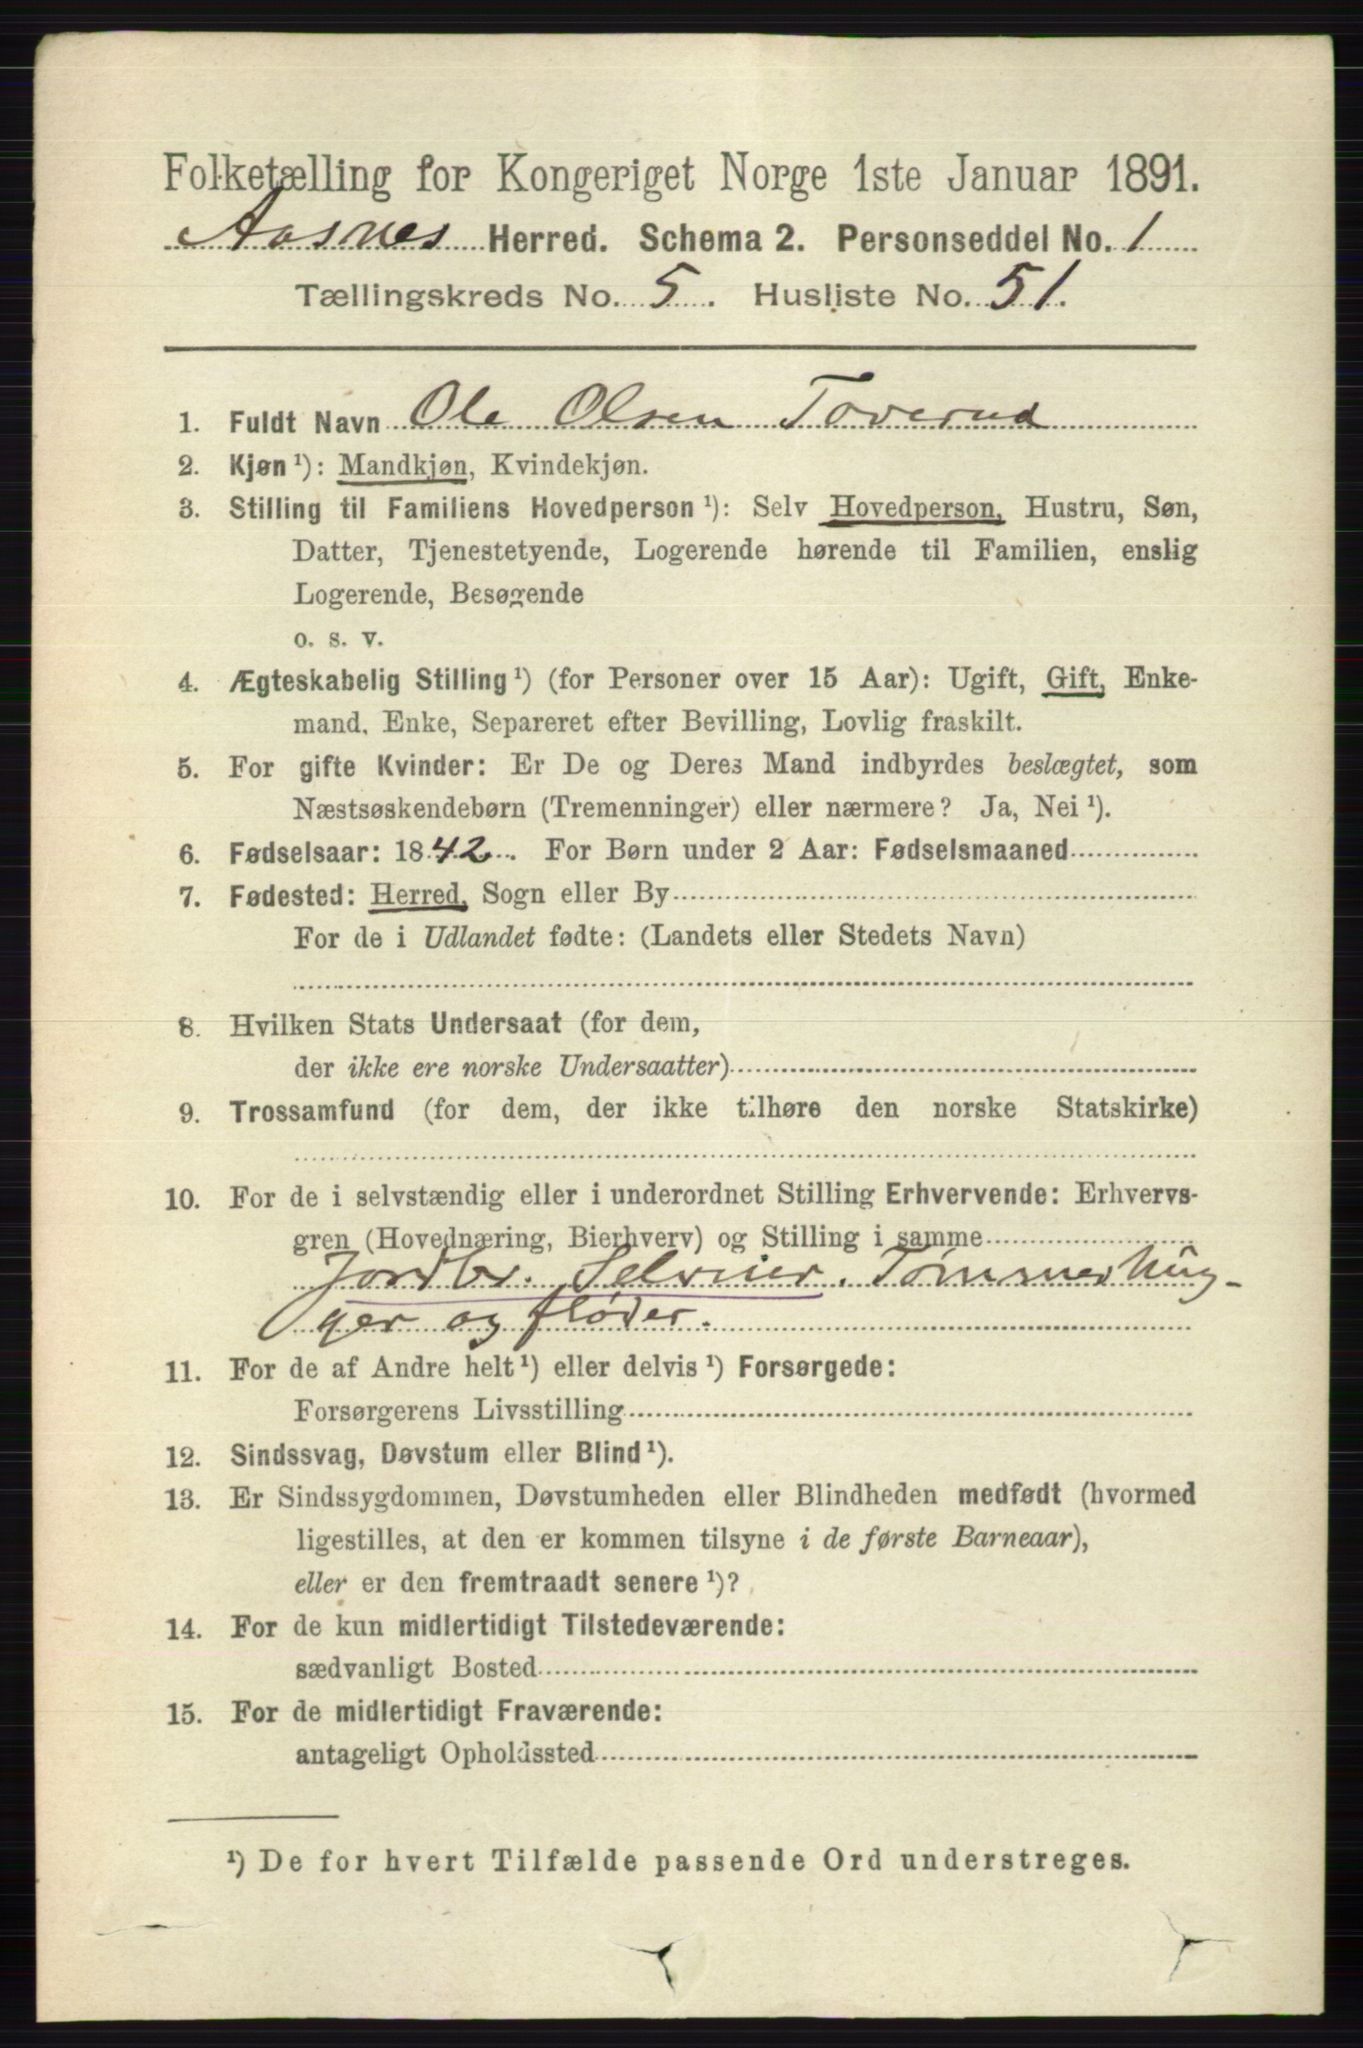 Folketælling for Kongeriget Norge 1ste Januar 1891.
Aasnes Herred. Schema 2. Personseddel No. 1
Tællingskreds No. 5. Husliste No. 51.
1. Fuldt Navn Ole Olsen Toverud
2. Kjøn ¹): Mandkjøn, Kvindekjøn.
3. Stilling til Familiens Hovedperson ¹): Selv Hovedperson, Hustru, Søn,
Datter, Tjenestetyende, Logerende hørende til Familien, enslig
Logerende, Besøgende
o. s. v.
4. Ægteskabelig Stilling ¹) (for Personer over 15 Aar): Ugift, Gift, Enke-
mand, Enke, Separeret efter Bevilling, Lovlig fraskilt.
5. For gifte Kvinder: Er De og Deres Mand indbyrdes beslægtet, som
Næstsøskendebørn (Tremenninger) eller nærmere? Ja, Nei ¹).
6. Fødselsaar: 1842. For Børn under 2 Aar: Fødselsmaaned
7. Fødested: Herred, Sogn eller By
For de i Udlandet fødte: (Landets eller Stedets Navn)
8. Hvilken Stats Undersaat (for dem,
der ikke ere norske Undersaatter)
9. Trossamfund (for dem, der ikke tilhøre den norske Statskirke)
10. For de i selvstændig eller i underordnet Stilling Erhvervende: Erhvervs-
gren (Hovednæring, Bierhverv) og Stilling i samme
Jordbr. Selveier. Tømmerhug-
ger og fløder.
11. For de af Andre helt ¹) eller delvis ¹) Forsørgede:
Forsørgerens Livsstilling
12. Sindssvag, Døvstum eller Blind ¹).
13. Er Sindssygdommen, Døvstumheden eller Blindheden medfødt (hvormed
ligestilles, at den er kommen tilsyne i de første Barneaar),
eller er den fremtraadt senere ¹)?
14. For de kun midlertidigt Tilstedeværende:
sædvanligt Bosted
15. For de midlertidigt Fraværende:
antageligt Opholdssted
¹) De for hvert Tilfælde passende Ord understreges.